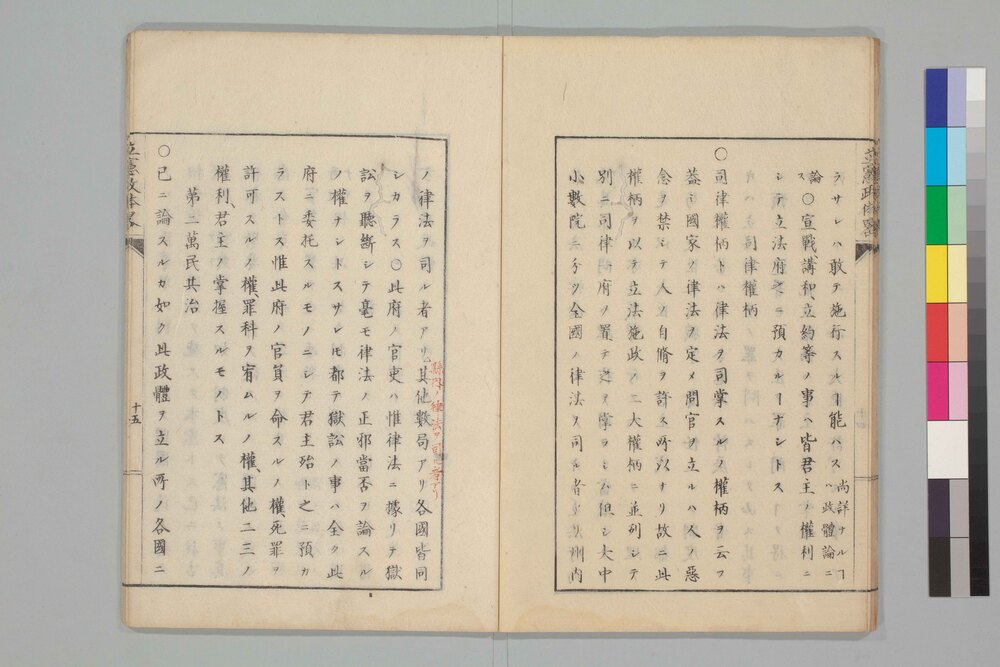 ラサレハ敢テ施行スルヿ能ハス尚詳ナルヿ
ハ政體論ニ
論ス
○宣戰、講和、立約等ノ事ハ皆君主ノ權利ニ
シテ立法府之ニ預カルヿナシトス
司律權柄
○司律權柄トハ律法ヲ司掌スルノ權柄ヲ云フ
蓋シ國家ノ律法ヲ定メ問官ヲ立ルハ人ノ惡
念ヲ禁シテ人ノ自脩ヲ許ス所以ナリ故ニ此
權柄ヲ以テ立法施政ノ二大權柄ニ並列シテ
別ニ司律府ヲ置テ之ヲ掌ラシム但シ大中
小數院ニ分ツ全國ノ律法ヲ司ル者アリ州内
ノ律法ヲ司ル者アリ其他數局アリ各國皆同
縣内ノ律法ヲ司ル者アリ
シカラス○此府ノ官吏ハ惟律法ニ據リテ獄
訟ヲ聽斷シテ毫モ律法ノ正邪當否ヲ論スル
ノ權ヲシトスサレ𪜈都テ獄訟ノ事ハ全ク此
府ニ委托スルモノニシテ君主殆ト之ニ預カ
ラストス惟此府ノ官員ヲ命スルノ權、死罪ヲ
許可スルノ權、罪科ヲ宥ムルノ權、其他二三ノ
權利、君主ノ掌握スルモノトス
第二萬民共治
○已ニ論スルカ如ク此政體ヲ立ル所ノ各國ニ
立憲政体略
十五
立憲政体略